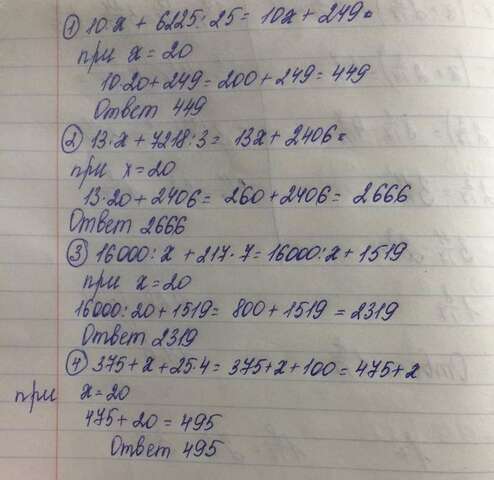 1) 10·x + 6225:25 = 10x + 249
при x = 20
10·20+249=200+249=449
Ответ 449
2) 13·x+7218:3= 13x+2406
при x=20
13·20+2406= 260+2406= 2666
Ответ 2666
3) 16000:x +217·7=16000:x+1519
при x=20
16000:20+1519= 800+1519 =2319
Ответ 2319
4) 375+x+25·4=375+x+100=475+x
при x=20
475+20=495
Ответ 495